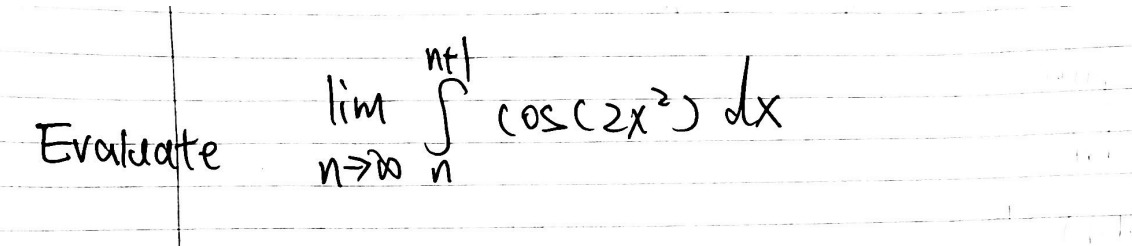 Evaluate lim n→∞ ∫ n n+1 cos(2x²) dx